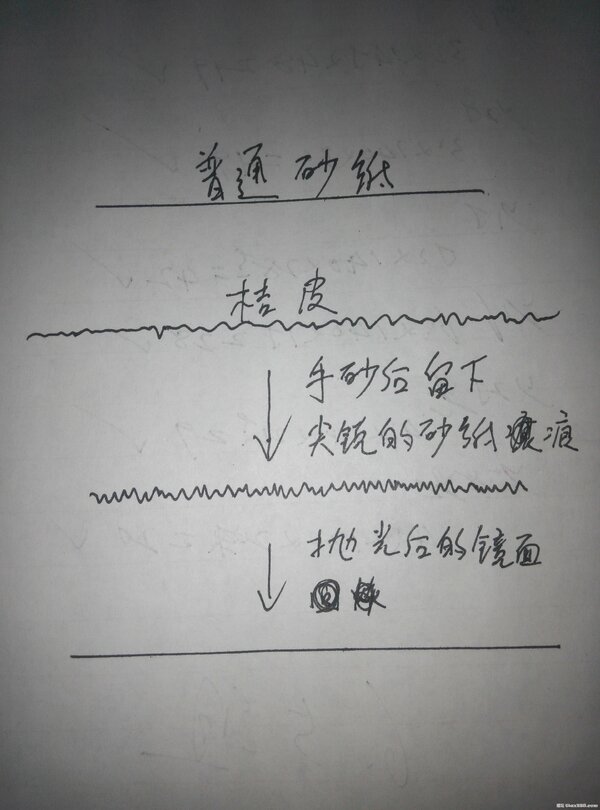 普通砂纸
桔皮
手砂后留下
尖锐的砂纸痕
抛光后的镜面